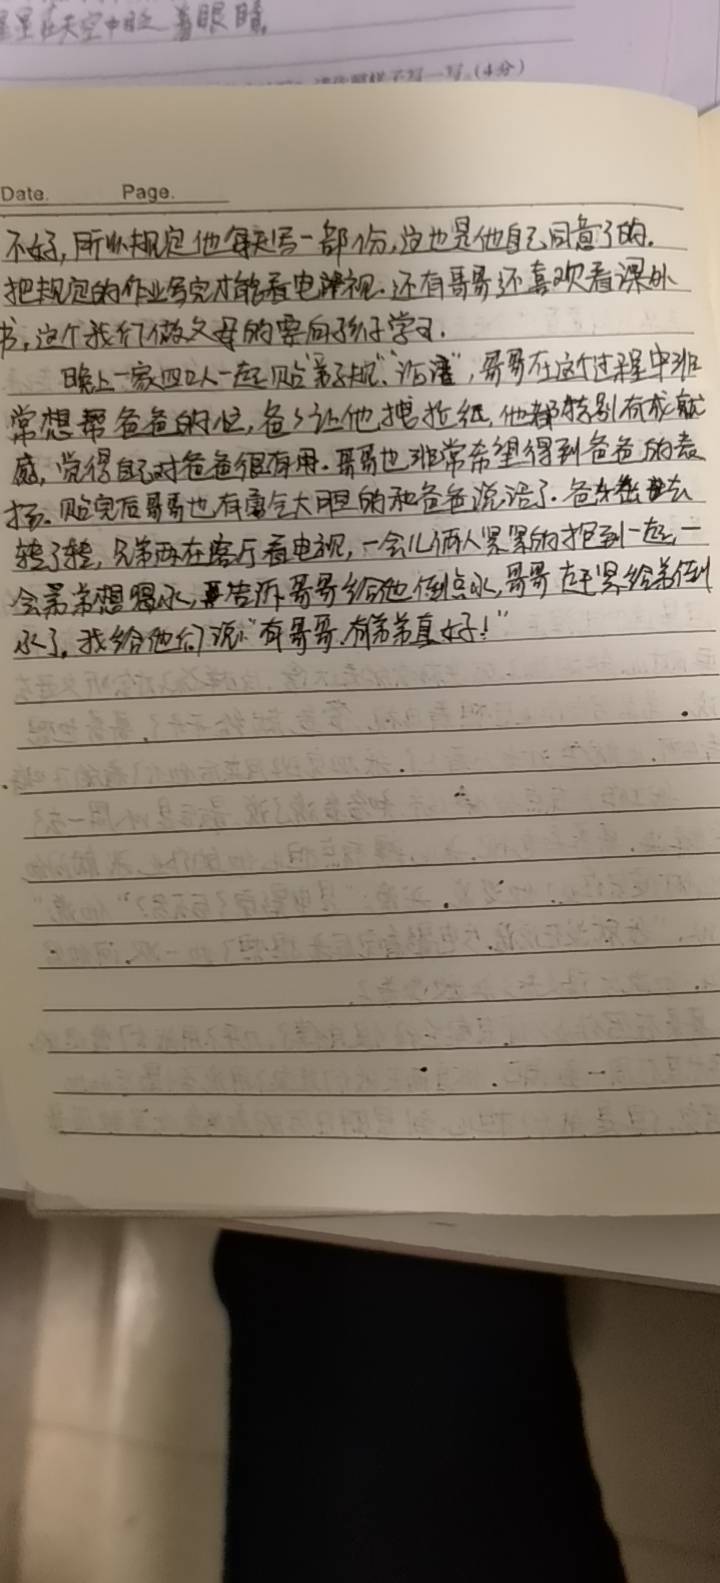 星星在天空中眨着眼睛。
写一写。(4分)
Date. Page.
不好,所以规定他每天写一部份,这也是他自己同意了的。
把规定的作业写完才能看电视。还有哥哥还喜欢看课外
书,这个我们做父母的要向孩子学习。
晚上一家四口人一起贴"弟子规"、,哥哥在这个过程中非
常想帮爸爸的忙,爸爸让他撕纸,他都特别有成就
感,觉得自己对爸爸很有用。哥哥也非常希望得到爸爸的表
扬。贴完后哥哥也有勇气大胆的和爸爸说话了。爸出去
转了转,兄弟两在客厅看电视,一会儿俩人紧紧的抱到一起,一
会弟弟想喝水,告诉哥哥给他倒点水,哥哥赶紧给弟倒
水了。我给他们说:"有哥哥、有弟弟真好!"